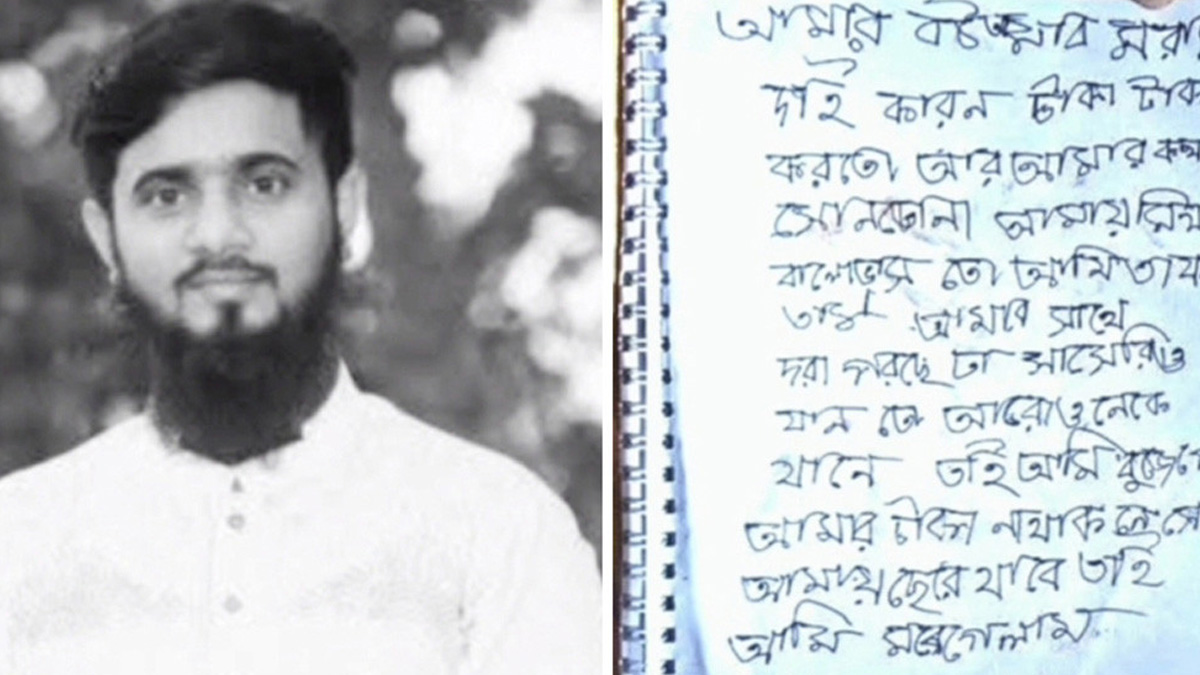 আমার বউ আমার মরার
দাই কারন টাকা টাকা
করতো আর আমার কথা
সোনতোনা আমায় মিথ্যা
বালোভাস তো আমি
তাই আমার সাথে
দরা পরছে ঢা সাসেরিও
যান তো আরোও নেকে
যানে তাই আমি বুজে
আমার টাকা নাথাক লে সে
আমায় ছেরে যাবে তাই
আমি মরে গেলাম